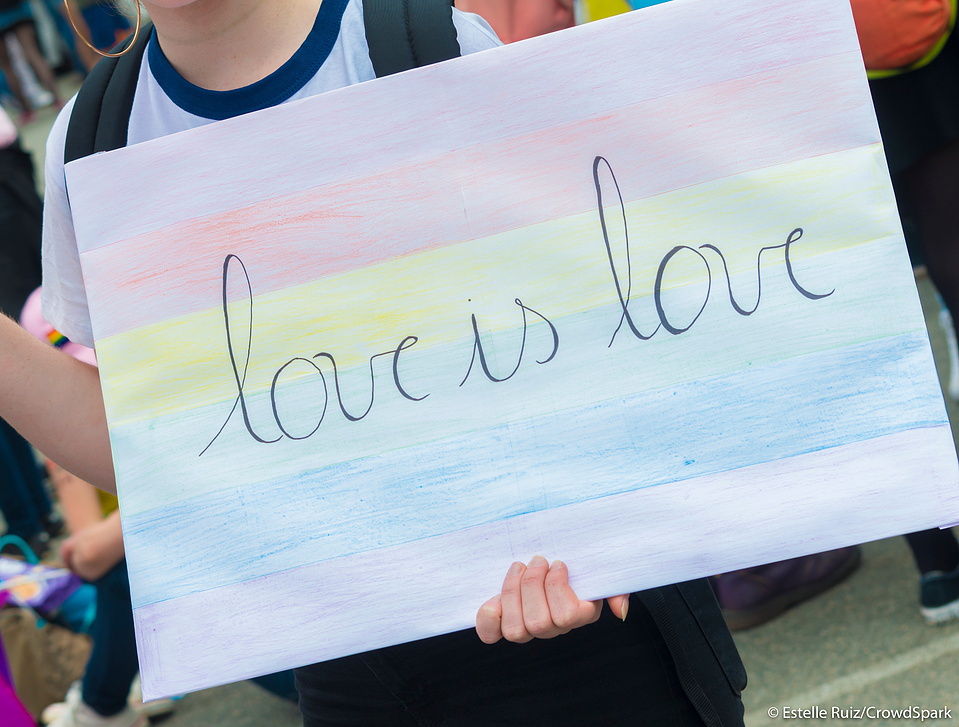 love is love
© Estelle Ruiz/CrowdSpark